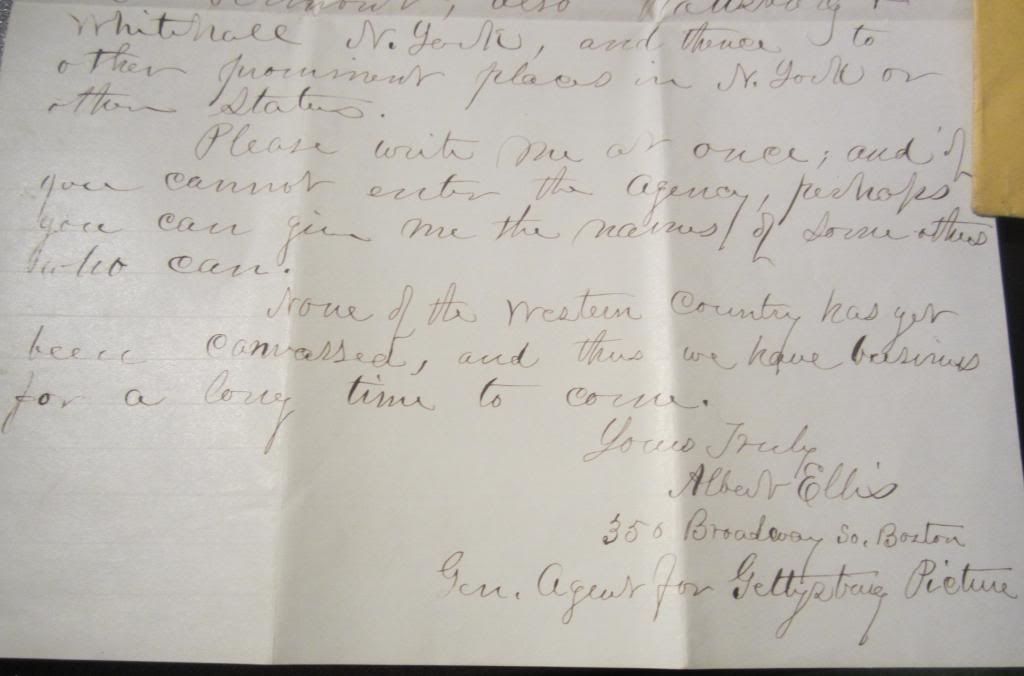 Vermont, also
Whitehall N. York, and thence to
other prominent places in N. York or
other States.
Please write me at once; and if
you cannot enter the agency, perhaps
you can give me the names of some others
who can.
None of the Western Country has yet
been canvassed, and thus we have business
for a long time to come.
Yours Truly
Albert Ellis
350 Broadway So. Boston
Gen. Agent for Gettysburg Picture